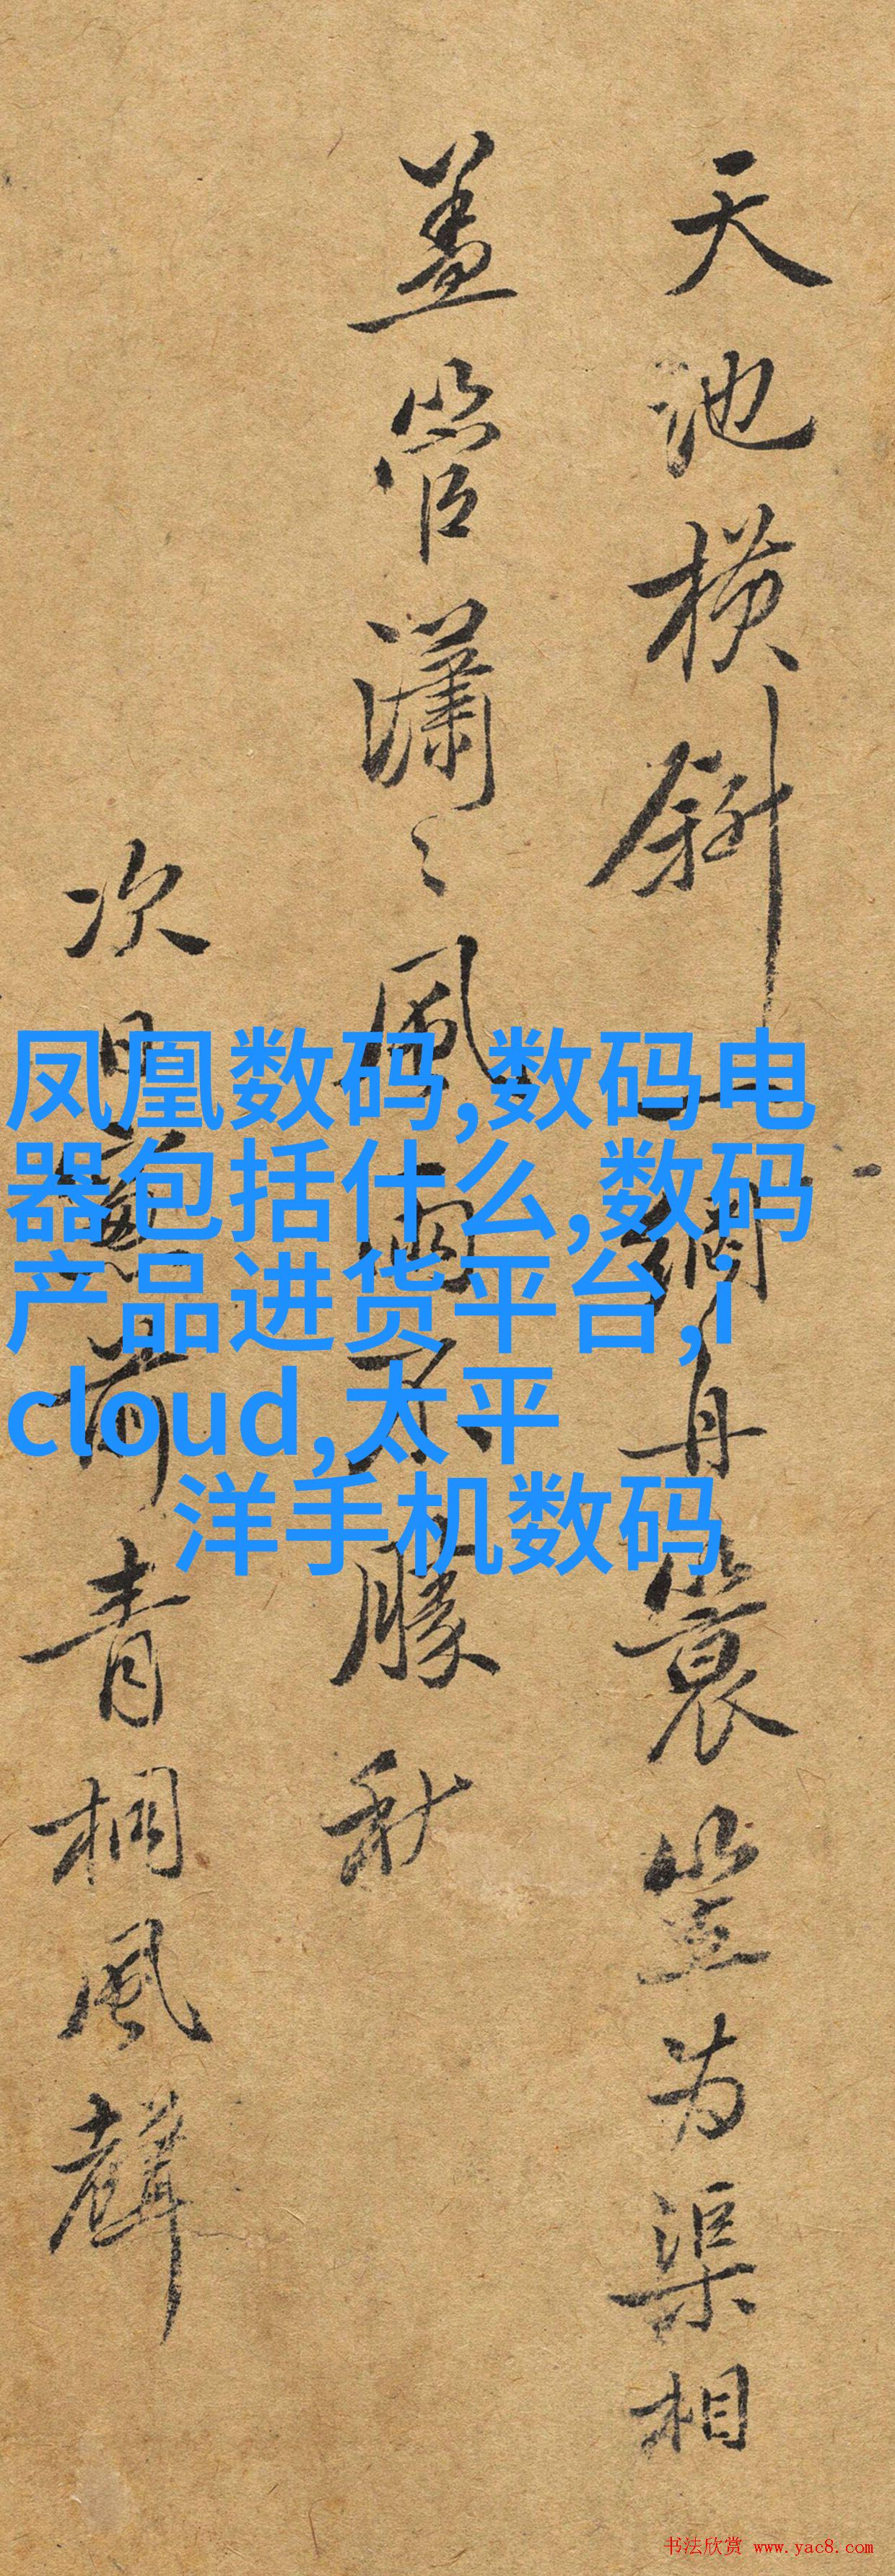 天池横斜一網舟蓑笠为渠相
盖管瀟〻風雨不勝秋
次日窓前青桐風聲
凤凰数码,数码电
器包括什么,数码
产品进货平台,i
cloud,太平
洋手机数码
书法欣赏 www.yac8.com